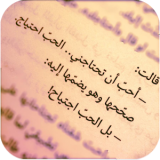 قالت:
- أحب أن تحتاجني.. الحبّ احتياج.
صحّحها وهو يضمّها إليه:
- بل الحبّ اجتياح!